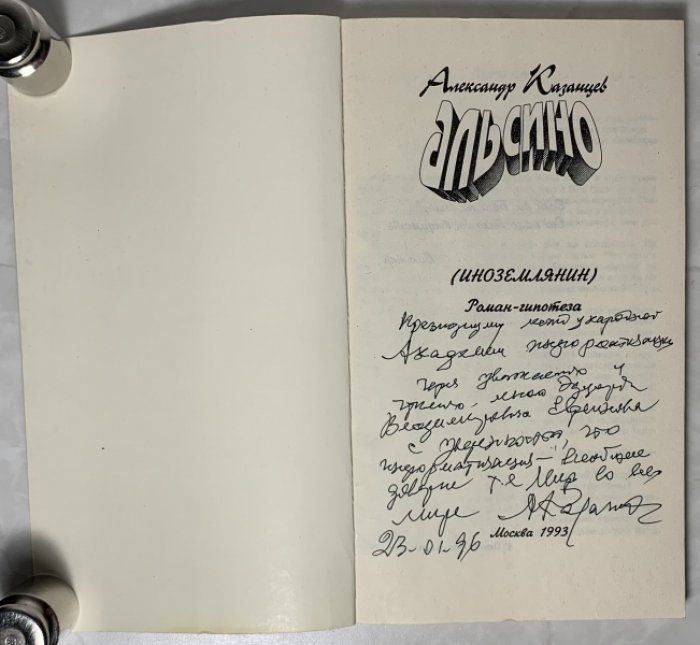 Александр Казанцев
альсино
(ИНОЗЕМЛЯНИН)
Роман-гипотеза
Президиуму международной
Академии информатизации
через уважаемого и
Эдуарда
Владимировича Евреинова
с уверенностью, что
информатизация – всеобщее
доверие т.е Мир во всем
мире
Москва 1993
23-01-96